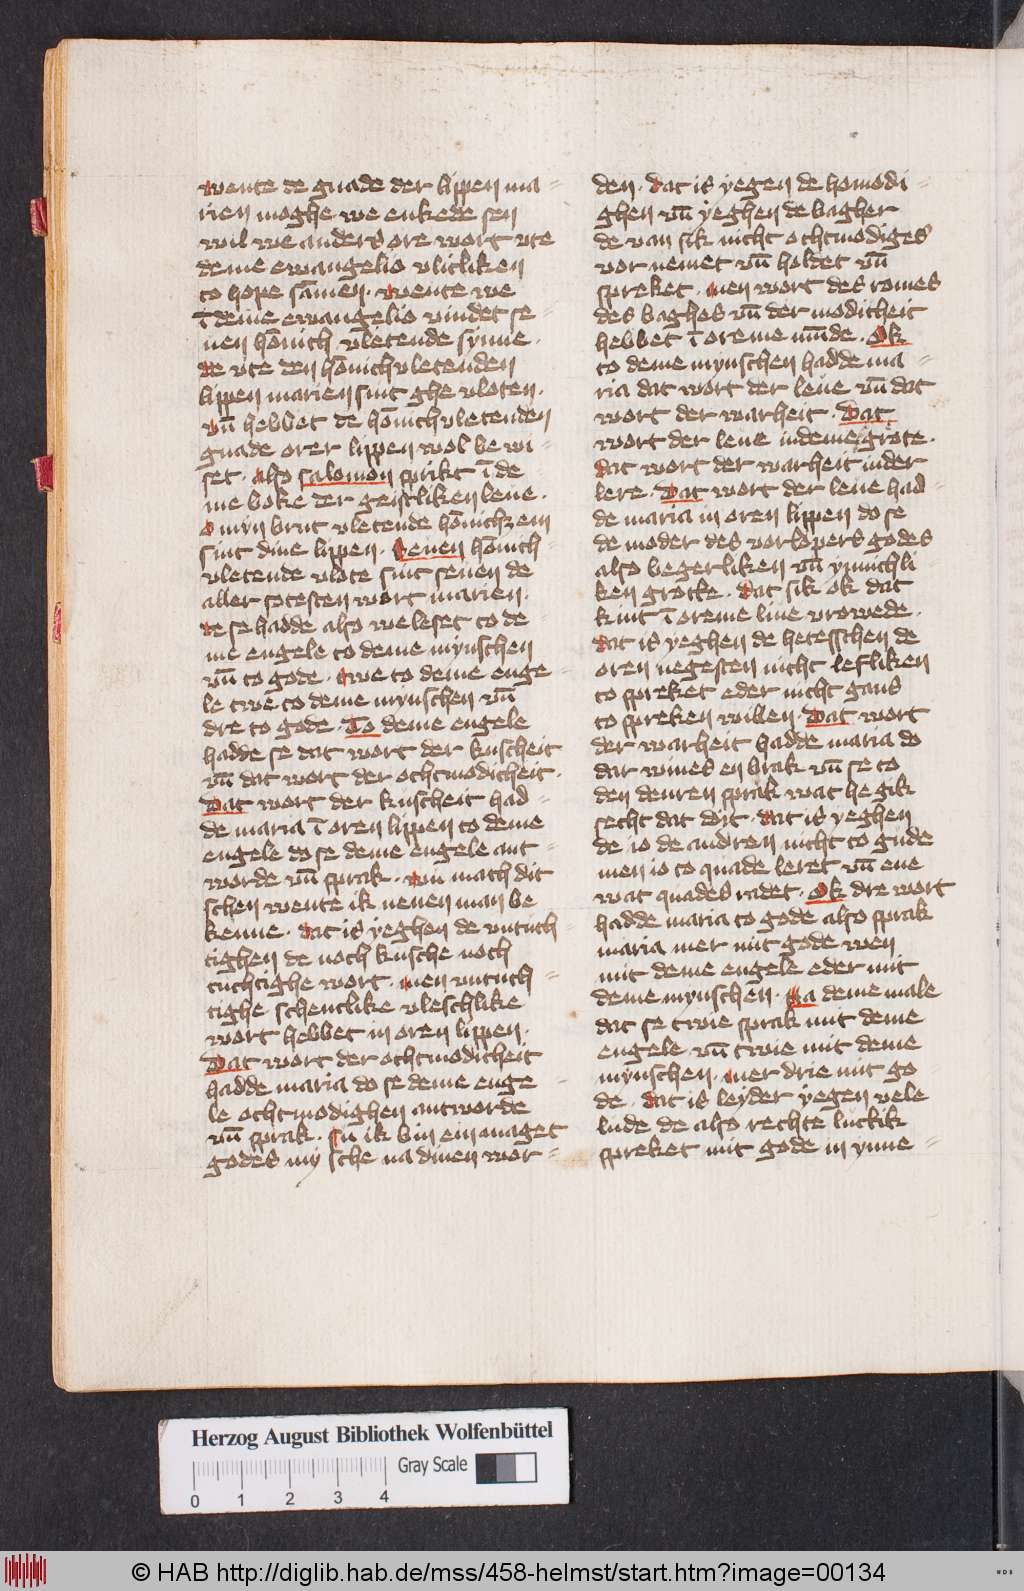 wente de gnade der lippen ma=
rien moghe we enkede sen
wil we anders ore wort vte
deme ewangelio vlitliken
to hope sāmen. wente we
ī deme ewangelio vindet se=
uen hōnich vletende synne.
de vte den hōnichvletenden
lippen marien sint ghe vloten.
vn̄ hebbet de hōnichvletenden
gnade orer lippen wol be wi=
set. also salomon sprikt ī de=
me boke der geistliken leue.
o myn brut vletende hōnichzem
sint dine lippen. Seuen hōnich=
vletende vlote sint seuen de
aller sotesten wort marien.
de se hadde also we leset to de=
me engele to deme mynschen
vn̄ to gode. twe to deme enge=
le twe to deme mynschen vn̄
dre to gode. To deme engele
hadde se dat wort der kuscheit
vn̄ dat wort der othmodicheit.
Dat wort der kuscheit had=
de maria ī oren lippen to deme
engele do se deme engele ant=
worde vn̄ sprak. wu mach dit
schen wente ik nenen man be
kenne. dat is yeghen de vntuch=
tighen de noch kusche noch
tuchtighe wort. men vntuch=
tighe schentlike vleschlike
wort hebbet in oren lippen.
Dat wort der othmodicheit
hadde maria do se deme enge=
le othmodighen antworde
vn̄ sprak. Su ik bin ein maget
godes my sche na dinen wor=
den. dat is yegen de homodi=
ghen vn̄ yeghen de bagher
de van sik nicht othmodiges
vor nemet vn̄ holdet vn̄
spreket. men wort des romes
des baghes vn̄ der modicheit
hebbet ī oreme mūde. Ok
to deme mynschen hadde ma=
ria dat wort der leue vn̄ dat
wort der warheit. Dat
wort der leue indeme grote.
dat wort der warheit inder
lere. Dat wort der leue had=
de maria in oren lippen do se
de moder des vorlopers godes
also begerliken vn̄ ynnichli
ken grotke. dat sik ok dat
kint ī oreme liue vrowede.
dat is yeghen de hetesschen de
oren negesten nicht lefliken
to spreket eder nicht gans
to spreken willen. Dat wort
der warheit hadde maria do
dar wines en brak vn̄ se to
den denren sprak wat he gik
secht dat dot. dat is yeghen
de io de andren nicht to gude
men io to quade leret vn̄ ene
wat quades radet. Ok dre wort
hadde maria to gode also sprak
maria mer mit gode wen
mit deme engele eder mit
deme mynschen. Na deme male
dat se twie sprak mit deme
engele vn̄ twie mit deme
mynschen. mer drie mit go=
de. dat is leyder yegen vele
lude de also rechte luckik
spreket mit gode in ynne=
Herzog August Bibliothek Wolfenbüttel
Gray Scale
0 1 2 3 4
© HAB http://diglib.hab.de/mss/458-helmst/start.htm?image=00134